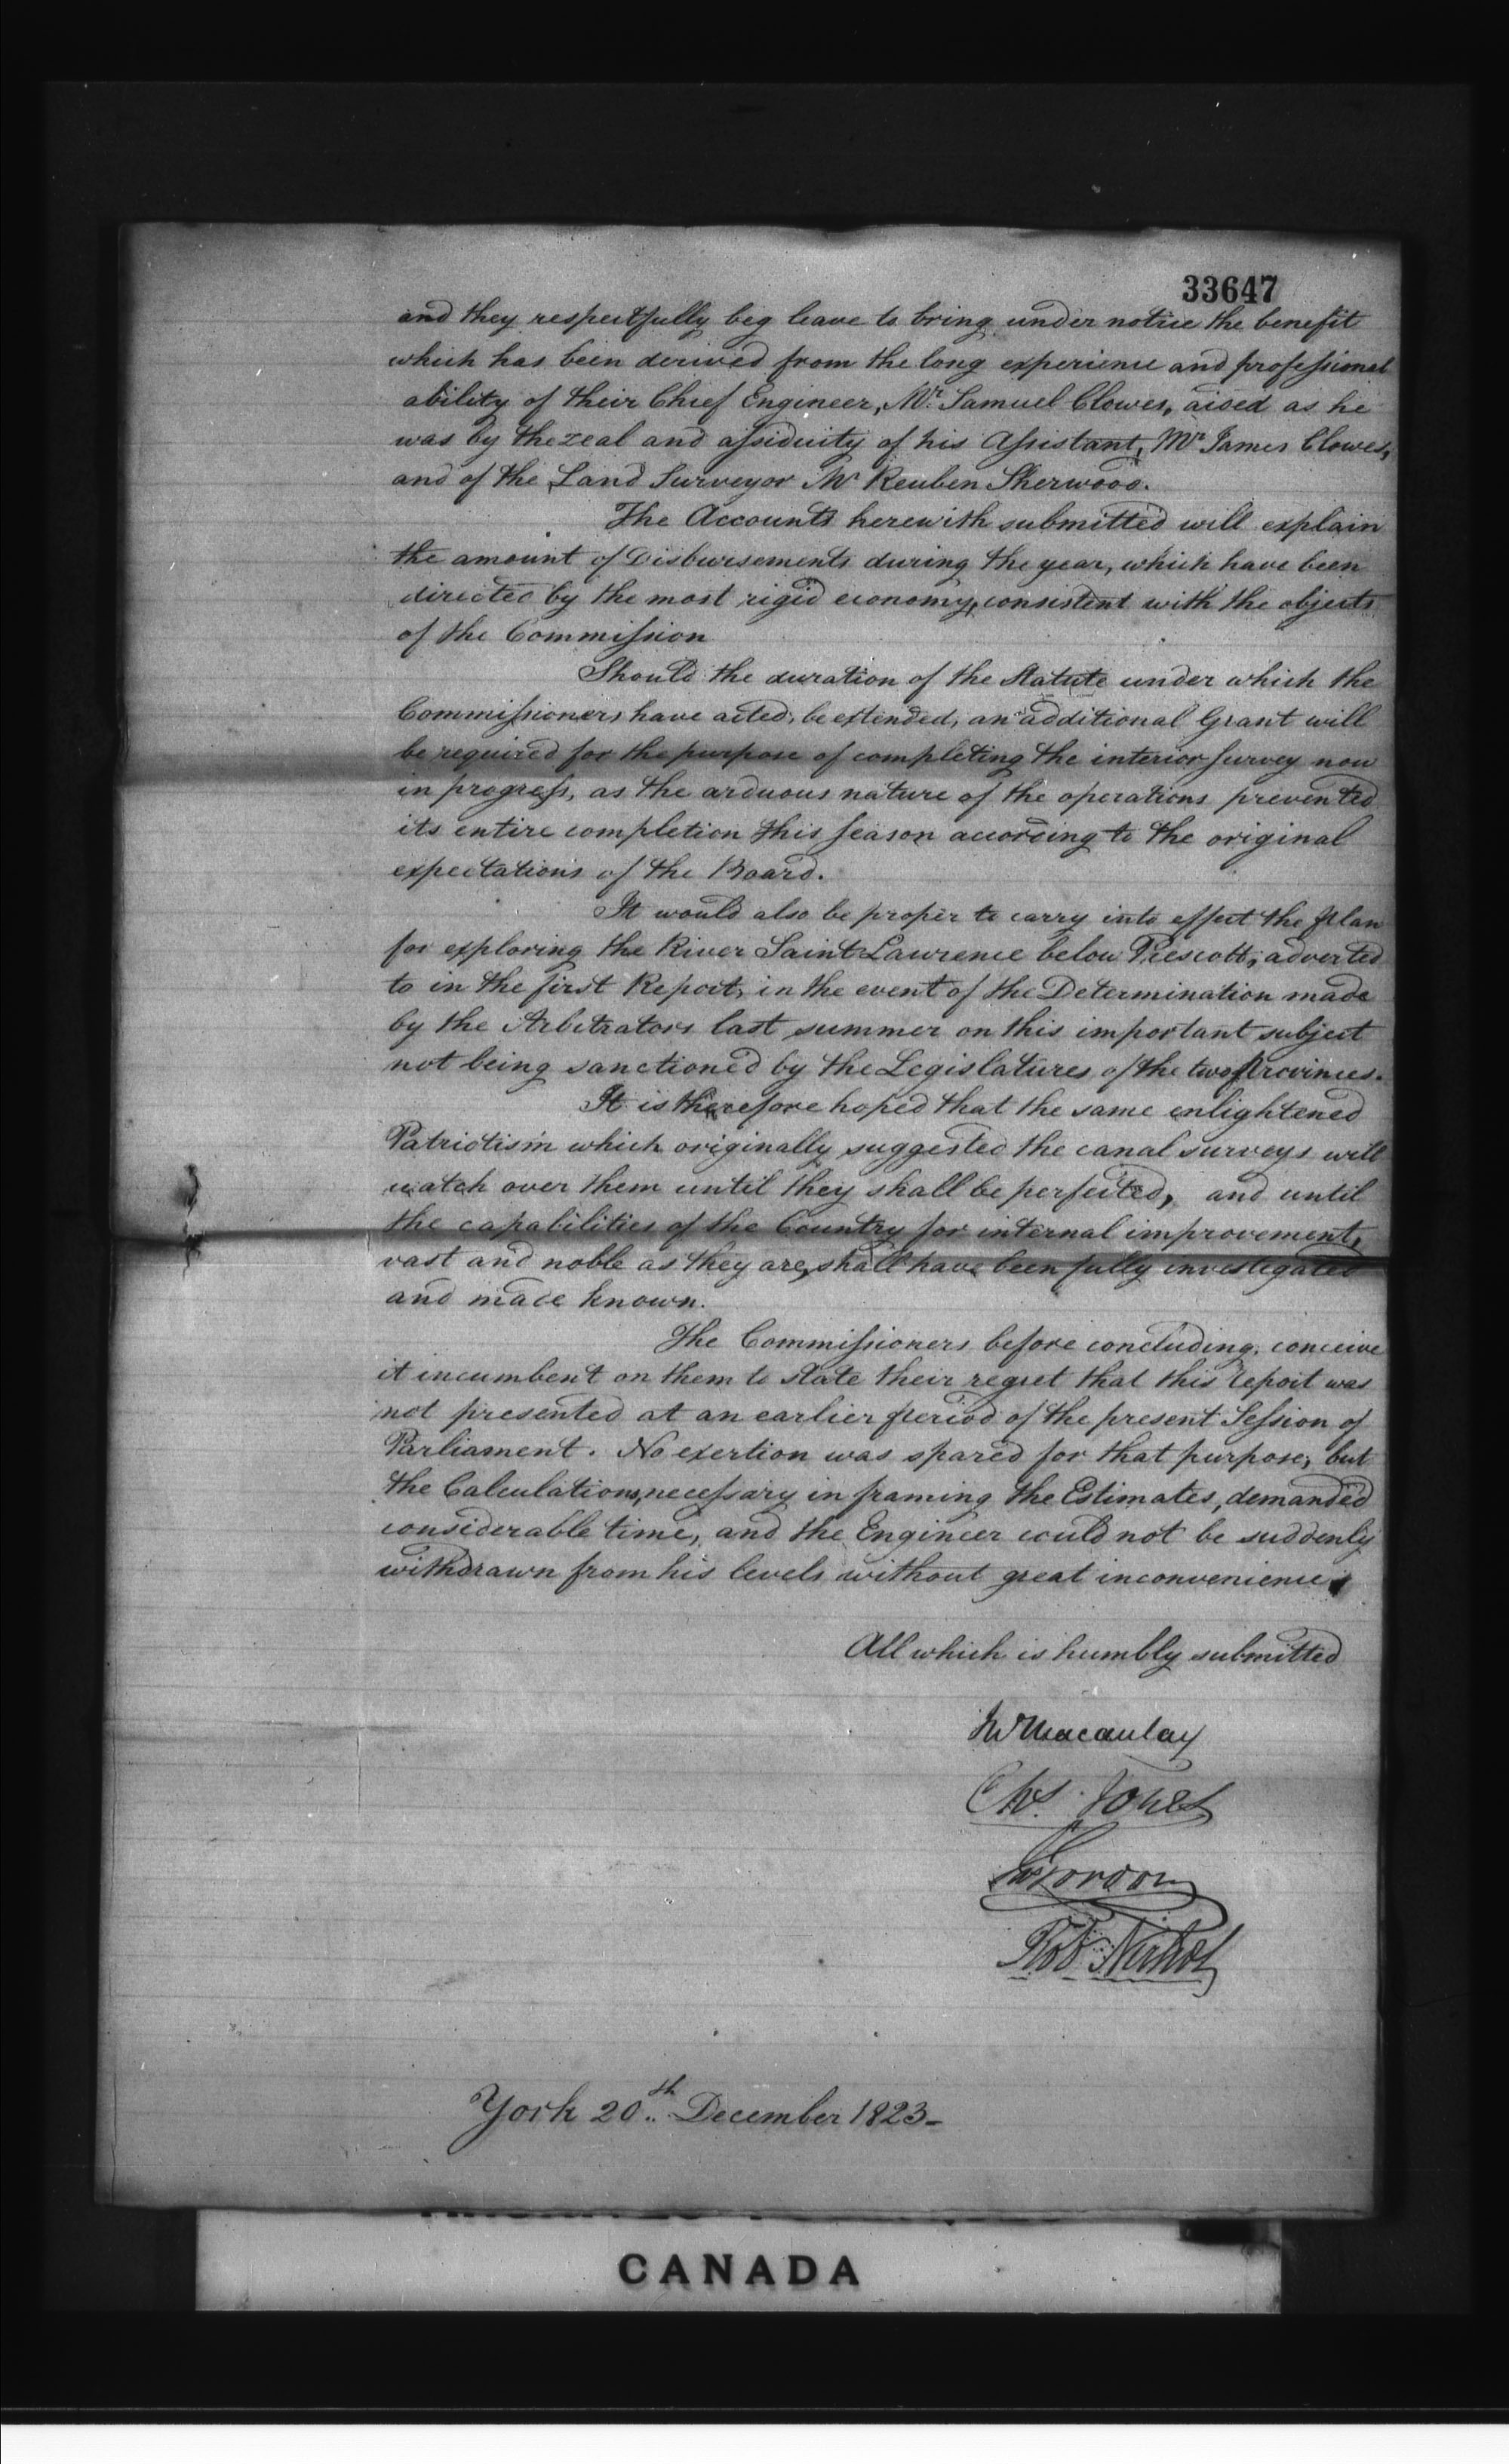 33647
and they respectfully beg leave to bring under notice the benefit
which has been derived from the long experience and professional
ability of their Chief Engineer, Mr. Samuel Clowes, aided as he
was by the zeal and assiduity of his Assistant, Mr James Clowes,
and of the Land Surveyor Mr Reuben Sherwood.
The Accounts herewith submitted will explain
the amount of Disbursements during the year, which have been
directed by the most rigid economy, consistent with the objects
of the Commission
Should the duration of the Statute under which the
Commissioners have acted, be extended, an additional Grant will
be required for the purpose of completing the interior survey now
in progress, as the arduous nature of the operations prevented
its entire completion this season according to the original
expectations of the Board.
It would also be proper to carry into effect the plan
for exploring the River Saint Lawrence below Prescott, adverted
to in the first Report, in the event of the Determination made
by the Arbitrators last summer on this important subject
not being sanctioned by the Legislatures of the two Provinces.
It is therefore hoped that the same enlightened
Patriotism which originally suggested the canal surveys will
watch over them until they shall be perfected, and until
the capabilities of the Country for internal improvement,
vast and noble as they are, shall have been fully investigated
and made known.
The Commissioners before concluding, conceive
it incumbent on them to state their regret that this report was
not presented at an earlier period of the present Session of
Parliament. No exertion was spared for that purpose, but
the Calculations, necessary in framing the Estimates, demanded
considerable time, and the Engineer could not be suddenly
withdrawn from his levels without great inconvenience
All which is humbly submitted
Macaulay
Chs. Jones
Gordon
Robt. Nichol
York 20th December 1823-
CANADA